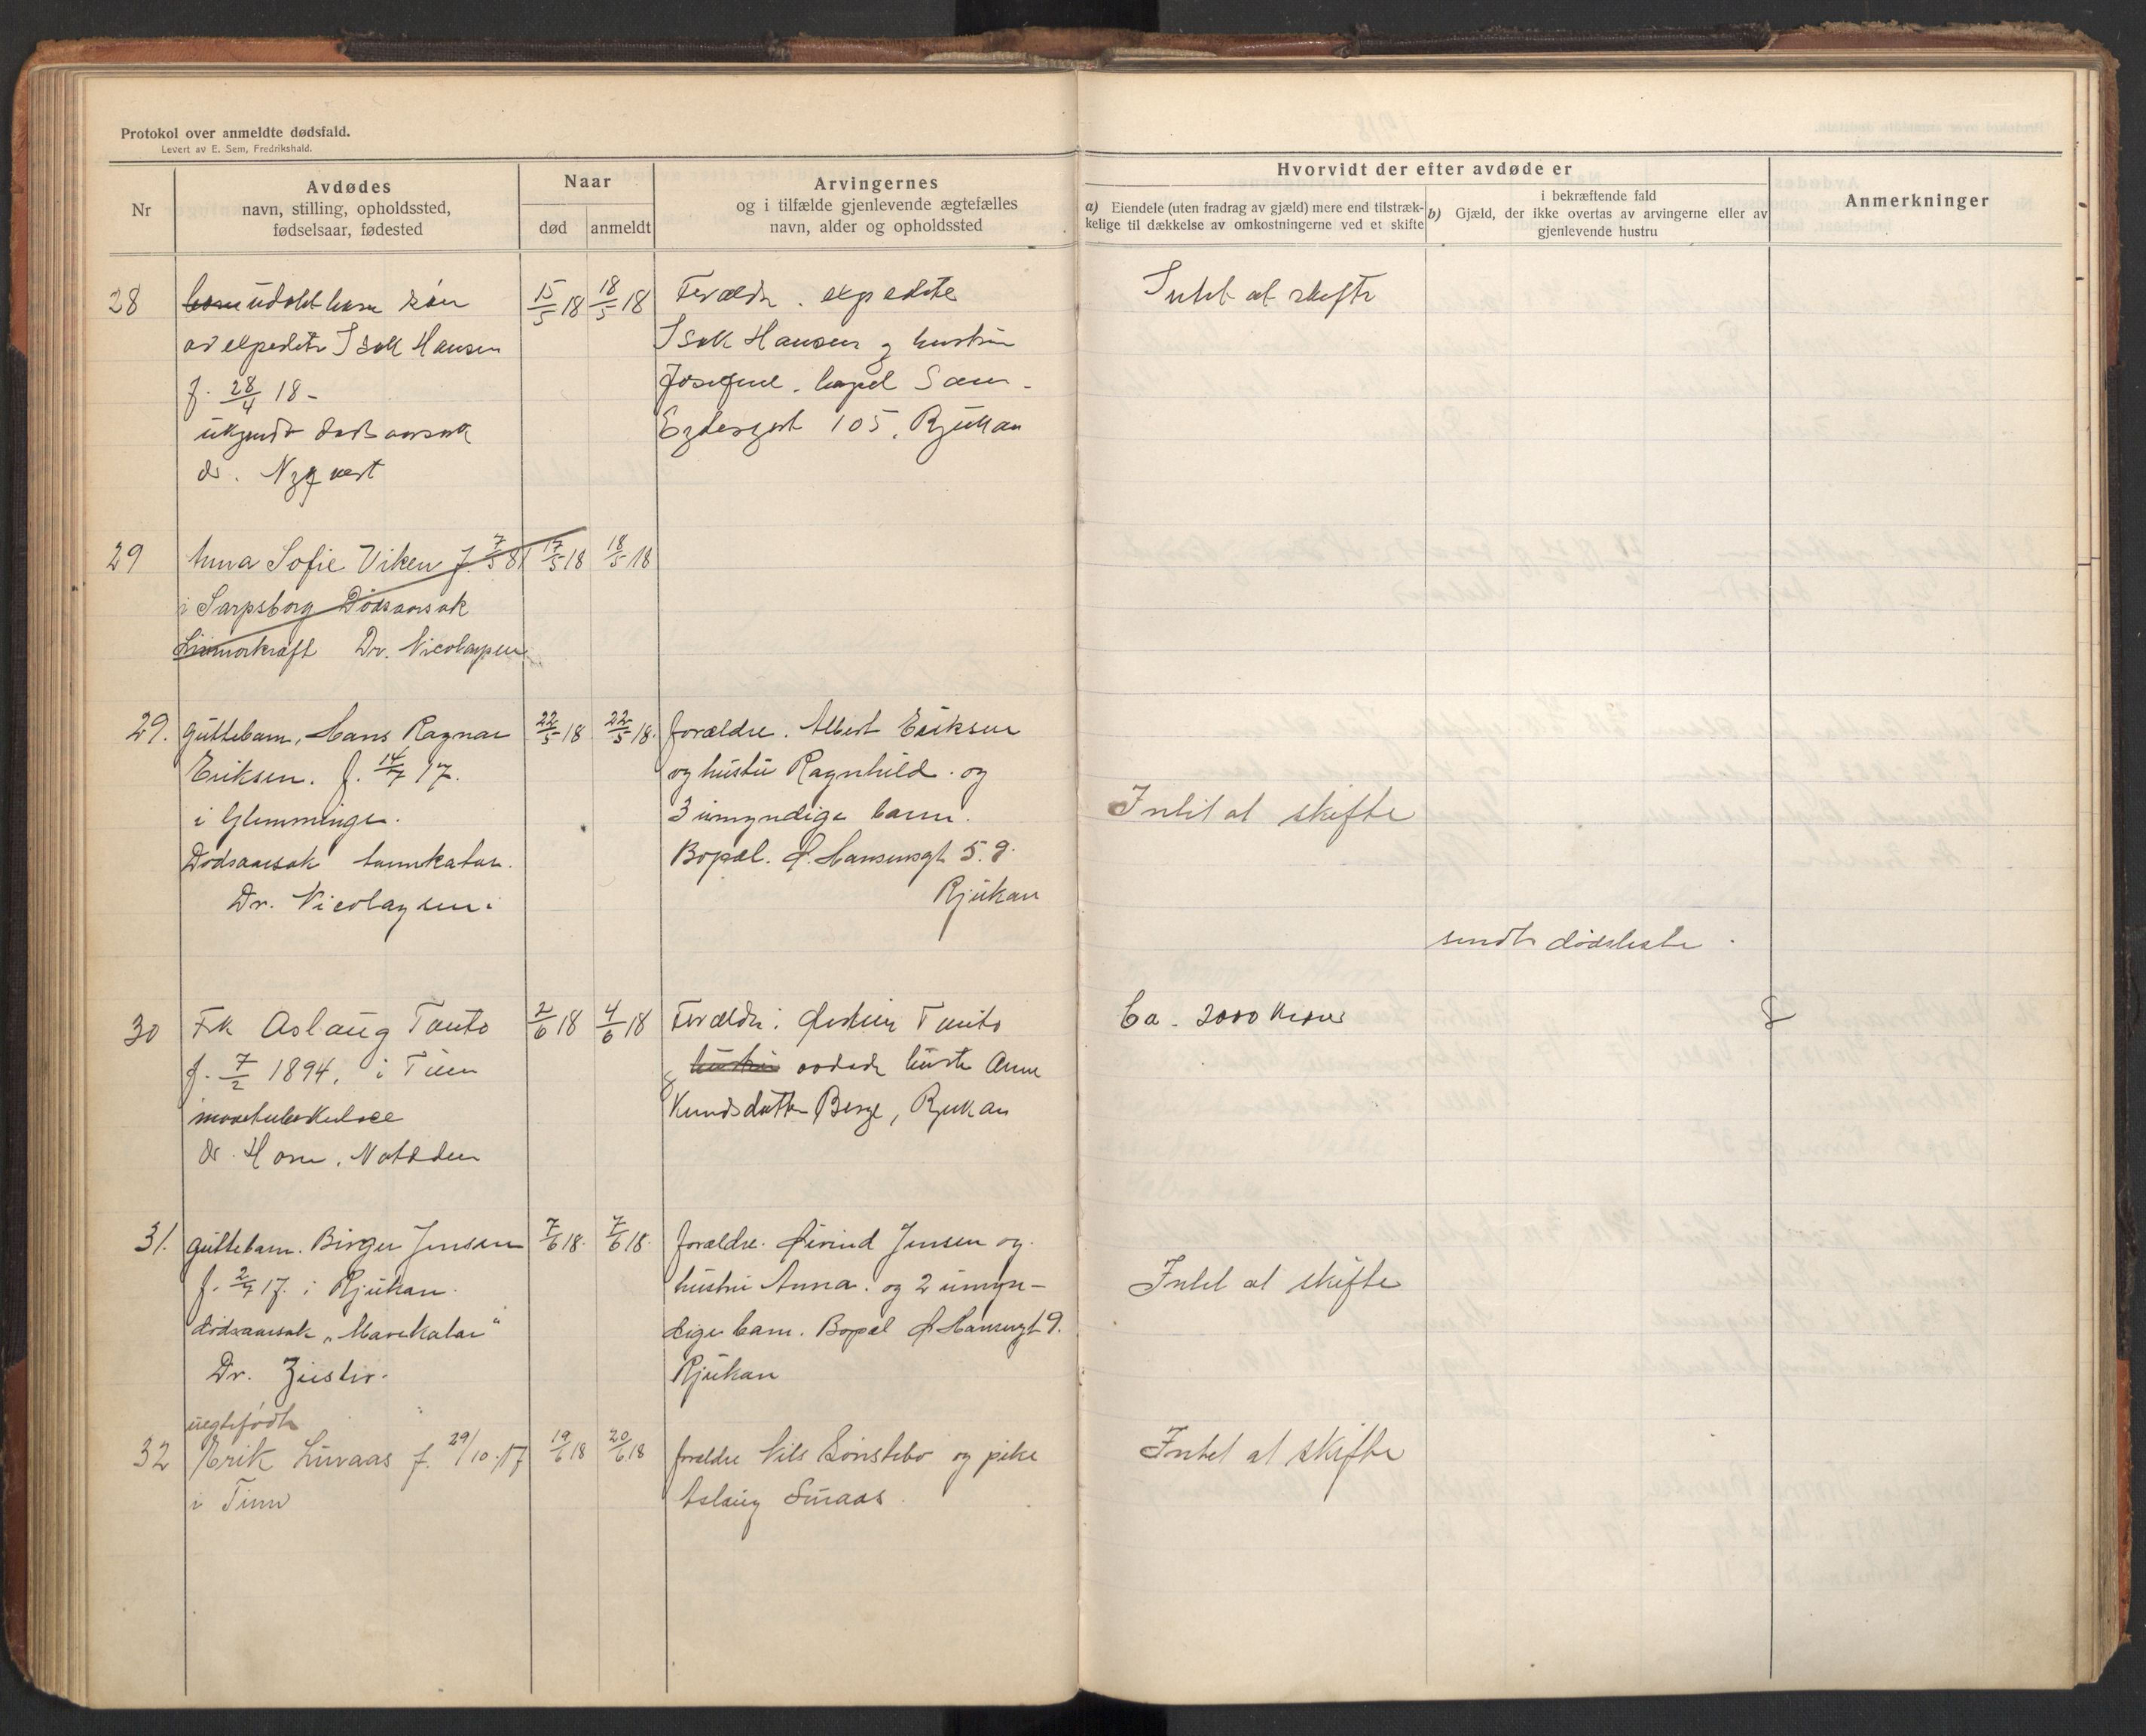 Protokol over anmeldte dødsfald.
Levert av E. Sem, Fredrikshald.
Nr
Avdødes
navn, stilling, opholdssted,
fødselsaar, fødested
Naar
død
anmeldt
Arvingernes
og i tilfælde gjenlevende ægtefælles
navn, alder og opholdssted
Hvorvidt der efter avdøde er
a) Eiendele (uten fradrag av gjæld) mere end tilstræk-
kelige til dækkelse av omkostningerne ved et skifte
i bekræftende fald
b) Gjæld, der ikke overtas av arvingerne eller av
gjenlevende hustru
Anmerkninger
28 udøbt barn
av expeditr Isak Hansen
f. 28/4 18 -
ukjendt dødsaarsak
dr. Nyqvest
15/5 18 18/5 18
Forældr. expeditr
Isak Hansen og hustru
Josefine. bopel Saem-
105, Rjukan
Intet at skifte
29 Anna Sofie Viken f. 7/5 81
i Sarpsborg Dødsaarsak
Dr. Nicolaysen
17/5 18 18/5 18
29. Guttebarn, Hans Ragnar
Eriksen. f. 14/7 17.
i Glemminge.
Dødsaarsak tarmkatar.
Dr. Nicolaysen.
22/5 18 22/5 18.
forældre. Albert Eriksen
og hustru Ragnhild. og
3 umyndige barn.
Bopæl. Ø. Hansensgt 59.
Rjukan
Intet at skifte
sendt dødsliste.
30 Frk Aslaug Tveito
f. 7/2 1894, i Tinn
dr. Horn, Notodden
2/6 18 4/6 18
Forældr: Østein Tveito
og hustru avdøde hustr Anne
Knudsdatter Berge, Rjukan
Ca. 2000 Kroner
31. guttebarn. Birger Jensen
f. 2/7 17. i Rjukan.
dødsaarsak „Mavekatar“
Dr.
7/6 18. 7/6 18.
forældre. Øivind Jensen og
hustru Anna. og 2 umyn-
dige barn. Bopæl Ø Hansensgt 9.
Rjukan
Intet at skifte
uegtefødt
32 Erik Luraas f. 29/10. 17
i Tinn
19/6 18 20/6 18
forældre Nils Sønstebø og pike
Aslaug Luraas.
Intet at skifte